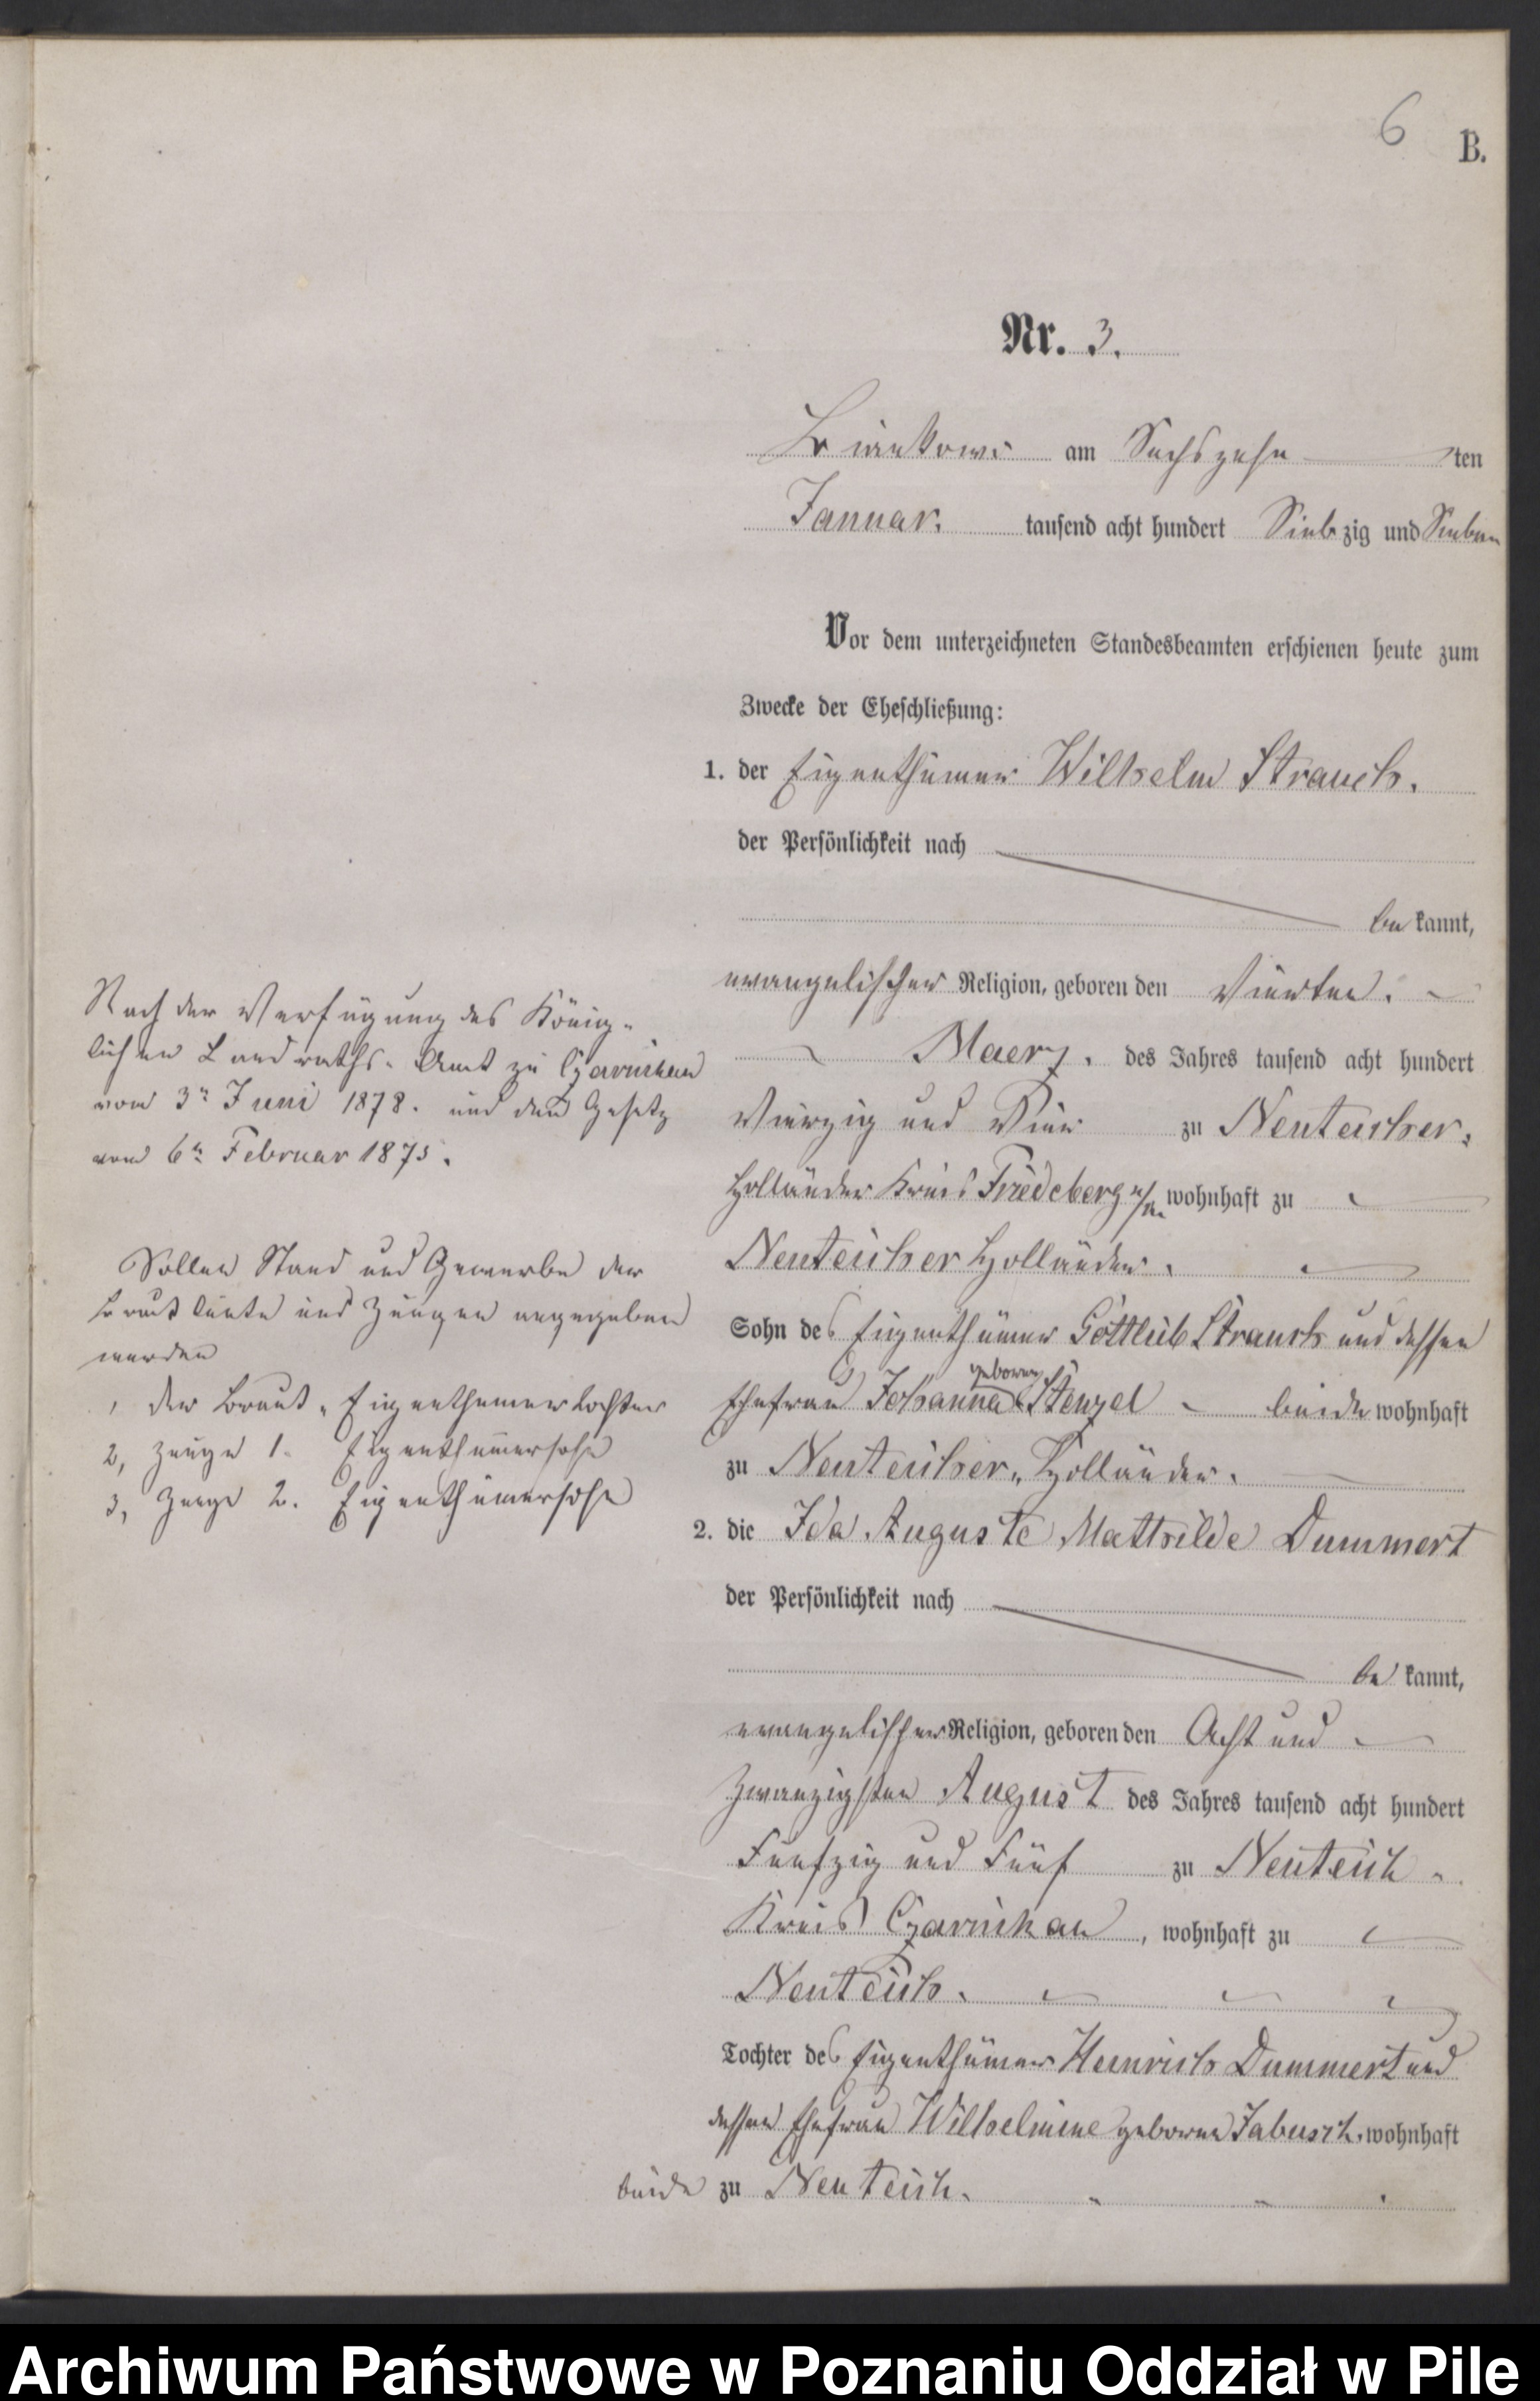 6
B.
Nr. 3.
am Sechszehn ten
Januar. tausend acht hundert Siebzig und Sieben
Vor dem unterzeichneten Standesbeamten erschienen heute zum
Zwecke der Eheschließung:
1. der Eigenthümer Wilhelm Strauch.
der Persönlichkeit nach
be kannt,
evangelischer Religion, geboren den Vierten.
Maerz. des Jahres tausend acht hundert
Vierzig und Vier zu Neuteicher.
Holländer Kreis Friedeberg n/m wohnhaft zu
Neuteicher Holländer.
Sohn des Eigenthümer Gottlieb Strauch und dessen
Ehefrau Johanna geboren Stenzel beide wohnhaft
zu Neuteicher Holländer.
2. die Ida Auguste Mathilde Dummert
der Persönlichkeit nach
be kannt,
evangelischer Religion, geboren den Acht und
Zwanzigsten August des Jahres tausend acht hundert
Fünfzig und Fünf zu Neuteich
Kreis Czarnikau, wohnhaft zu
Neuteich.
Tochter des Eigenthümer Heinrich Dummert und
dessen Ehefrau Wilhelmine geborne Jabusch. wohnhaft
beide zu Neuteich.
Nach der Verfügung des König-
lichen Landraths-Amt zu Czarnikau
vom 3n Juni 1878. und dem Gesetz
vom 6n Februar 1875.
Sollen Stand und Gewerbe der
Brautleute und Zeugen angegeben
werden
1 der Braut, Eigenthümertochter
2, Zeuge 1. Eigenthümersohn
3, Zeuge 2. Eigenthümersohn
Archiwum Państwowe w Poznaniu Oddział w Pile